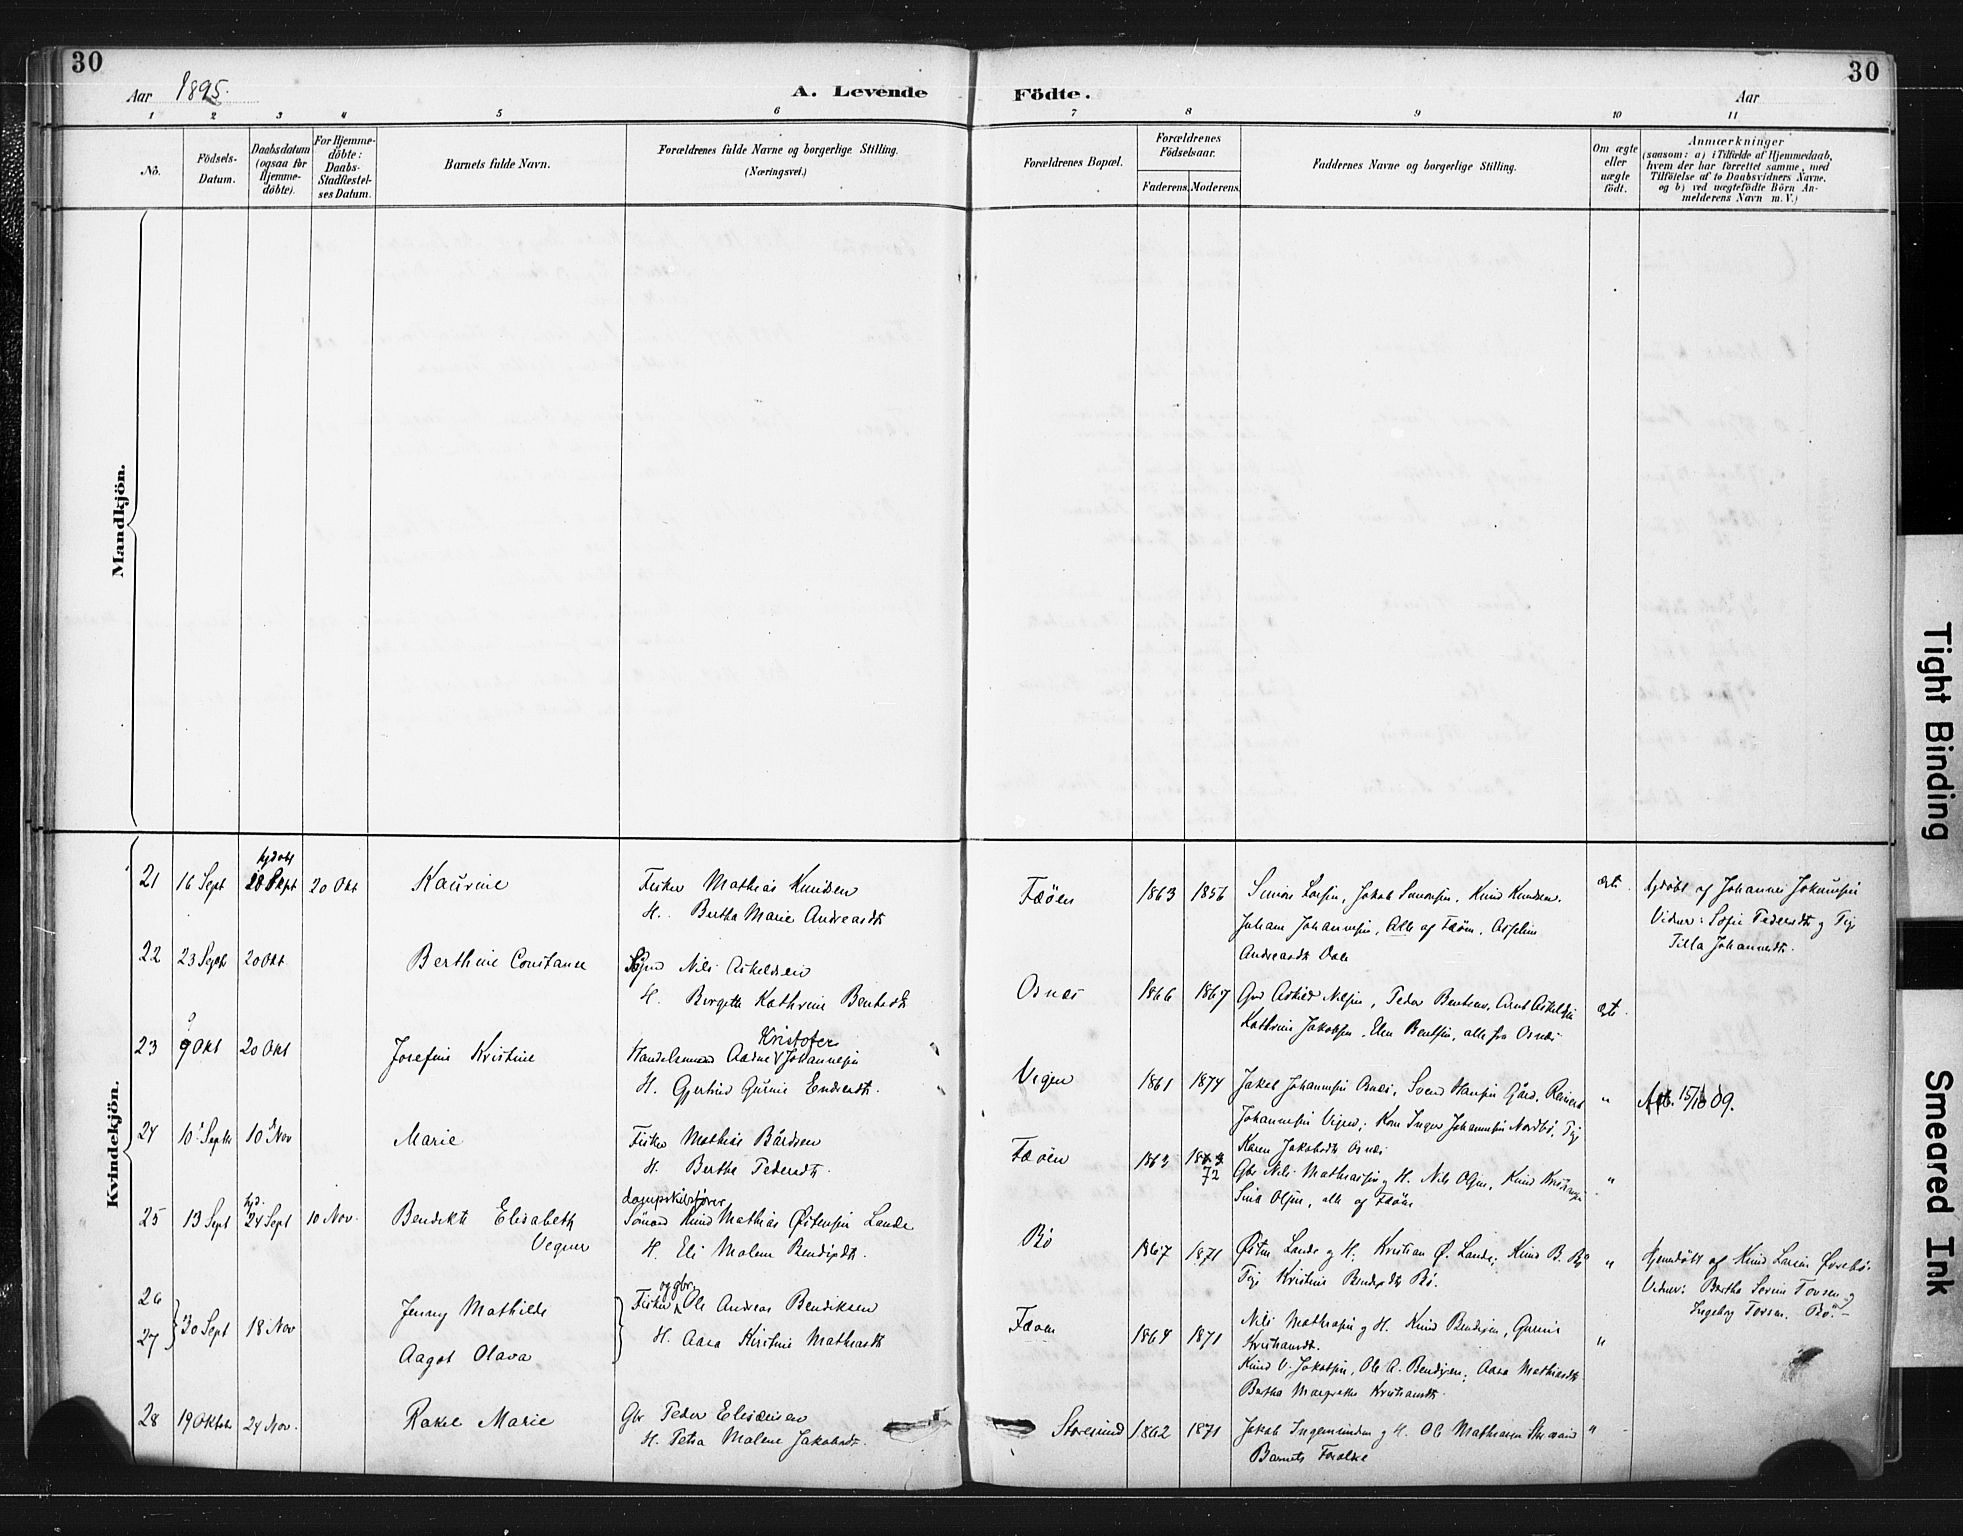 30
Aar 1895.
A. Levende
1 2 3 4 5 6
No.
Födsels-Datum.
Daabsdatum (ogsaa for Hjemme-döbte).
For Hjemme-döbte: Daabs-Stadfæstel-ses Datum.
Barnets fulde Navn.
Forældrenes fulde Navne og borgerlige Stilling.
(Næringsvei.)
Födte.
30
Aar
7 8 9 10 11
Forældrenes Bopæl.
Forældrenes Födselsaar.
Faderens. Moderens.
Faddernes Navne og borgerlige Stilling.
Om ægte eller uægte födt.
Anmærkninger
(saasom: a) i Tilfælde af Hjemmedaab,
hvem der har forrettet samme, med
Tilföielse af to Daabsvidners Navne.
og b) ved uægtefödte Börn An-
melderens Navn m. V.)
Mandkjön.
Kvindekjön.
21 16 Sept 28 Sept 20 Okt Kaurine Fisker Mathias Knudsen
H. Bertha Marie Andreasdt
Fæöen 1863 1856 Simon Larsen, Jakob Simonsen, Knud Knudsen
Johannesen, Alle af Fæöen,
Andreasdt Dale
ægte
hjdöbt af Johannes
Vidner: Sofie Pedersdt og Pige
Johannesdt.
22 23 Sept 20 Okt Berthine Constanse Nils Askeldsen
H. Bergette Kathrine Bentsdt
Osnes 1866 1867 Gm Askild Nilsen, Peder Bentsen, Arnt Askeldsen
Kathrine Jakobsen, Elen Bentsen, alle fra Osnes
ægte
23 9 Okt 20 Okt Josefine Kristine
Kristofer
Handelsmand Aadne Johannesen
H. Gjertrud Gurine Endresdt.
Vigen 1861 1874 Jakob Johannesen Osnes, Svend Hansen Gård, Reinert
Johannesen Vigen; Kone Inger Johannesen Nordbö, Pige
Karen Jakobsdt Osnes
" Att. 15/10 09.
24 10 Sept 10 Nov Marie Fisker Mathias Bårdsen
H. Berthe Pedersdt.
Fæöen 1863 72 Gbr Nils Mathiassen og H. Nils Olsen, Knud
Sina Olsen, alle af Fæöen
"
25 13 Sept hjd. 24 Sept 10 Nov. Bendikte Elisabeth
Vegner
dampskibsförer
Sömand Knud Mathias Östensen Lande
H. Eli Malene Bendixdt.
Bö 1867 1871 Östen Lande og H. Kristian Ö. Lande; Knud B. Bö
Pige Kristine Bendixdt Bö.
" Hjemdöbt af Knud Larsen
Vidner: Bertha Serine Torsen og
Ingeborg Torsen. Bö.
26 30 Sept 18 Nov Jenny Mathilde
27 Aagot Olava
og gbr.
Fisker Ole Andreas Bendiksen
H. Aasa Kirstine Mathiasdt
Fæöen 1864 1871 Nils Mathiasen og H. Knud Bendixen, Gurine
Kristiansdt.
Knud V. Jakobsen, Ole A. Bendixen, Aasa Mathiasdt
Bertha Margrethe Kristiansdt.
"
28 19 Oktober 24 Nov. Rakel Marie Gbr Peder Eliasensen
H. Petra Malene Jakobsdt.
Storesund 1862 1871 Jakob Ingemundsen og H. Ole Mathiasen Storesund
Barnets Forældre
"
Tight Binding
Smeared Ink